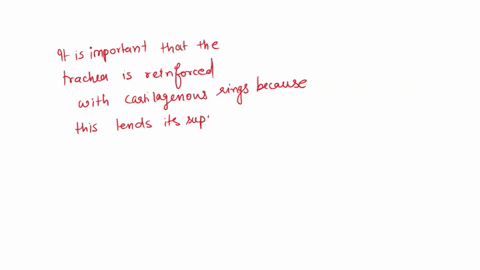 It is important that the
trachea is reinforced
with cartilagenous rings because
this lends its sup